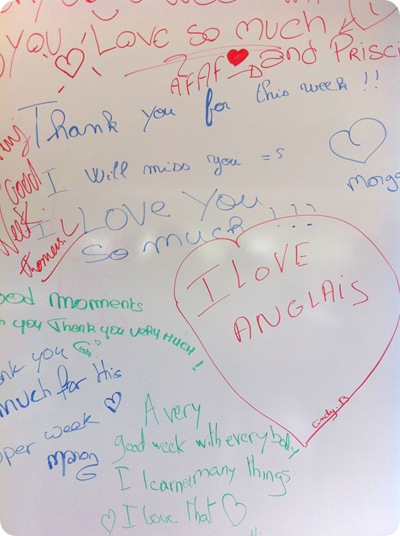 YOU LOVE SO MUCH
AFAF and PRISCI
Thank you for this week !!
I will miss you =s
Morga
I LOVE YOU
SO MUCH !!!
Good
Week
thomas.
I LOVE
ANGLAIS
Cindy B
ood moments
you Thank you very much !
ank you
much for His
per week
Manon
G
A very
good week with everybody
I learned many things
I love that